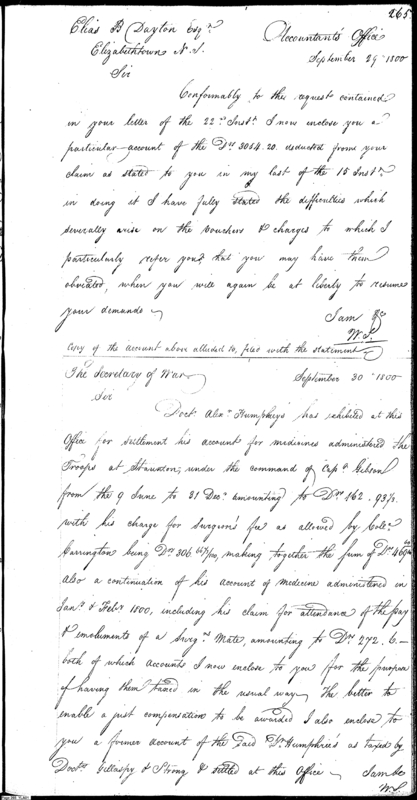 265
Elias B Dayton Esqr. Accountants Office
Elizabethtown N.J. September 29 - 1800
Sir
Conformably to the request contained
in your letter of the 22d Inst. I now enclose you a
particular account of the Drs 3054.20. deducted from your
claim as stated to you in my last of the 15 Inst.
in doing it I have fully stated the difficulties which
severally arise on the vouchers & charges to which I
particularly refer you, that you may have them
obviated, when you will again be at liberty to resume
your demands
I am &c
W.S.
Copy of the account above alluded to, filed with the statement
The Secretary of War September 30 - 1800
Sir
Doct. Alexr. Humphreys has exhibited at this
Office for settlement his account for medicines administered the
Troops at Staunton, under the command of Capt. Gibson
from the 9 June to 31 Decr. amounting to Drs 162.93½.
with his charge for Surgeon's fee as allowed by Colo.
Carrington being Drs 306, making together the sum of Drs 469
Also a continuation of his account of medicine administered in
Jany. & Feby 1800, including his claim for attendance of the pay
& emoluments of a Surgns Mate, amounting to Drs 272.6.—
both of which accounts I now enclose to you for the purpose
of having them taxed in the usual way. The better to
enable a just compensation to be awarded I also enclose to
you a former account of the said Dr. Humphries as taxed by
Doctrs Gillaspy & Strong & settled at this Office I am &c
W.S.